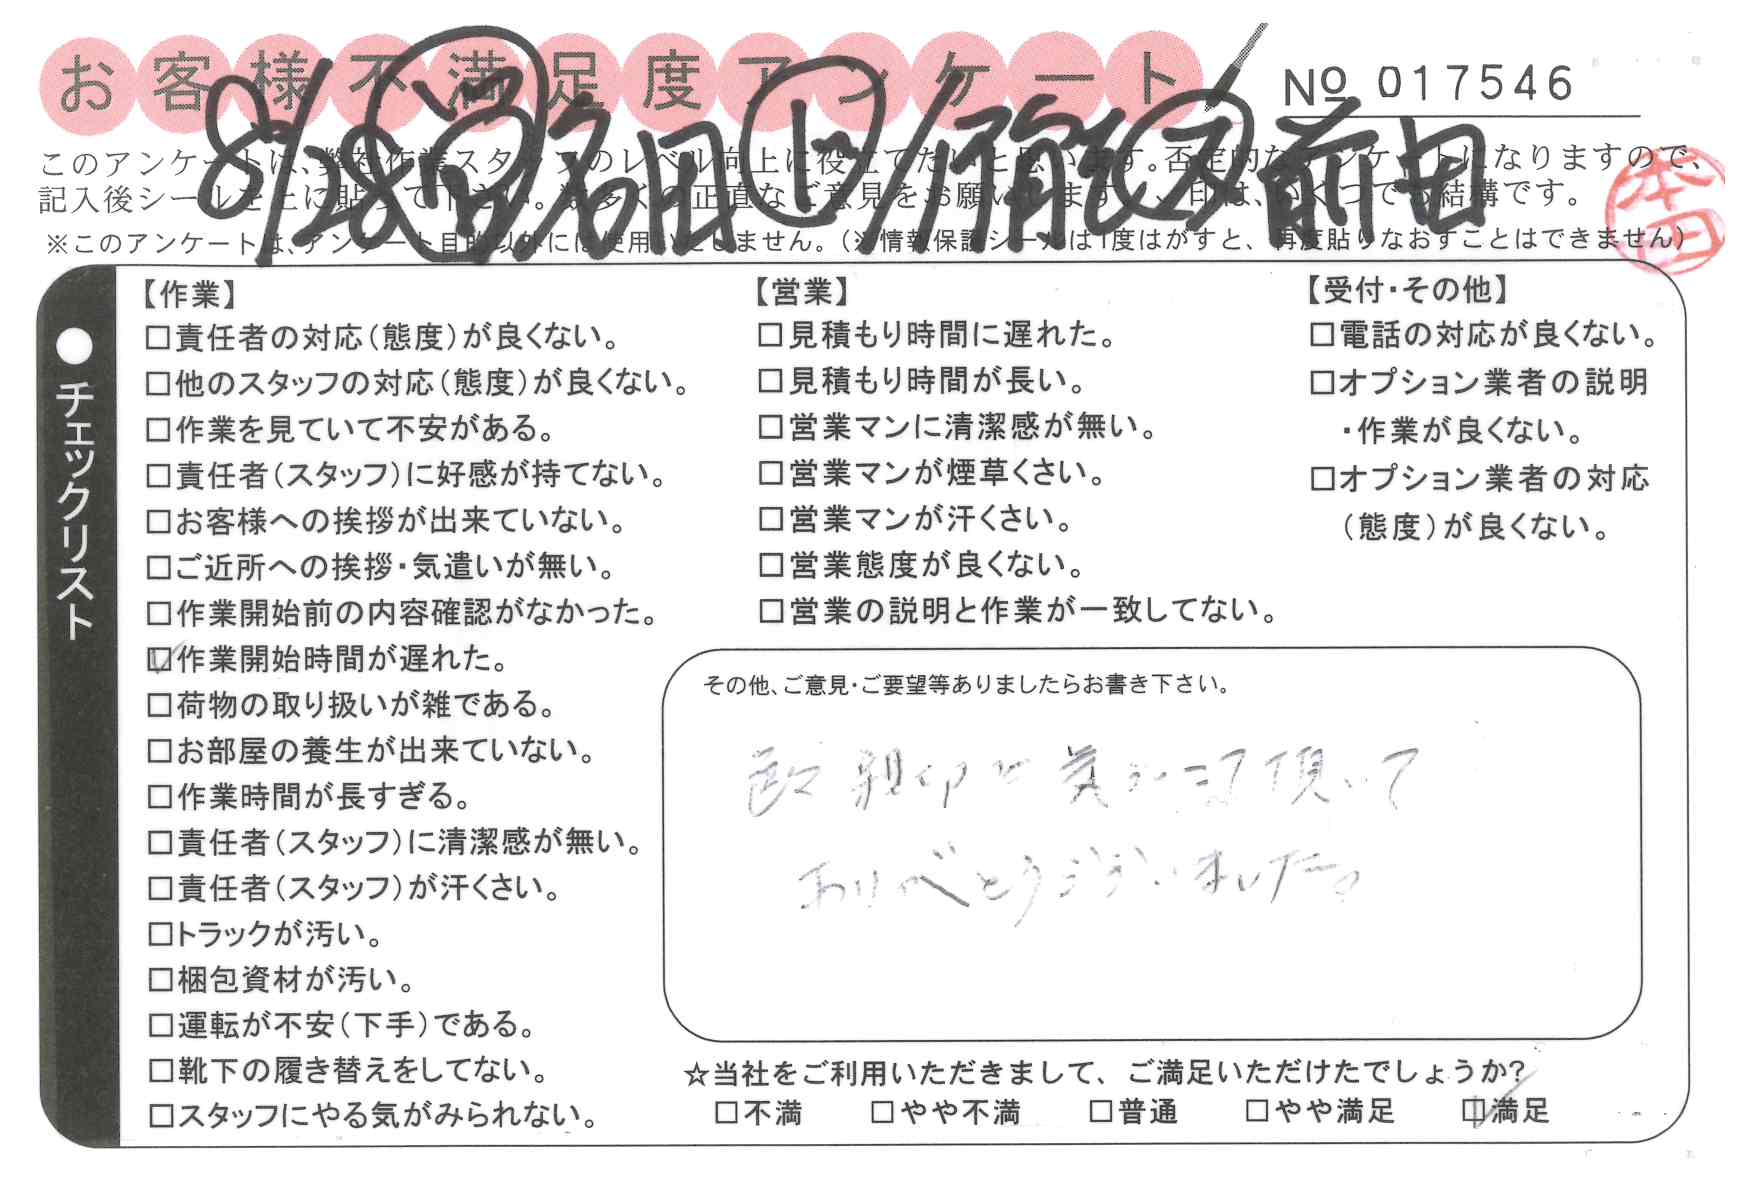 お客様不満足度アンケート
№ 017546
8/28 営 名田 上/ 有 前田
このアンケートは、弊社作業スタッフのレベル向上に役立てたいと思います。否定的なアンケートになりますので、
記入後シールを上に貼って下さい。数多くの正直なご意見をお願いします。✓印は、いくつでも結構です。
本田
※このアンケートは、アンケート目的以外には使用いたしません。(※情報保護シールは1度はがすと、再度貼りなおすことはできません)
●チェックリスト
【作業】
□責任者の対応(態度)が良くない。
□他のスタッフの対応(態度)が良くない。
□作業を見ていて不安がある。
□責任者(スタッフ)に好感が持てない。
□お客様への挨拶が出来ていない。
□ご近所への挨拶・気遣いが無い。
□作業開始前の内容確認がなかった。
☑作業開始時間が遅れた。
□荷物の取り扱いが雑である。
□お部屋の養生が出来ていない。
□作業時間が長すぎる。
□責任者(スタッフ)に清潔感が無い。
□責任者(スタッフ)が汗くさい。
□トラックが汚い。
□梱包資材が汚い。
□運転が不安(下手)である。
□靴下の履き替えをしてない。
□スタッフにやる気がみられない。
【営業】
□見積もり時間に遅れた。
□見積もり時間が長い。
□営業マンに清潔感が無い。
□営業マンが煙草くさい。
□営業マンが汗くさい。
□営業態度が良くない。
□営業の説明と作業が一致してない。
【受付・その他】
□電話の対応が良くない。
□オプション業者の説明
・作業が良くない。
□オプション業者の対応
(態度)が良くない。
その他、ご意見・ご要望等ありましたらお書き下さい。
頂いて
ありがとうございました。
☆当社をご利用いただきまして、ご満足いただけたでしょうか?
□不満 □やや不満 □普通 □やや満足 ☑満足